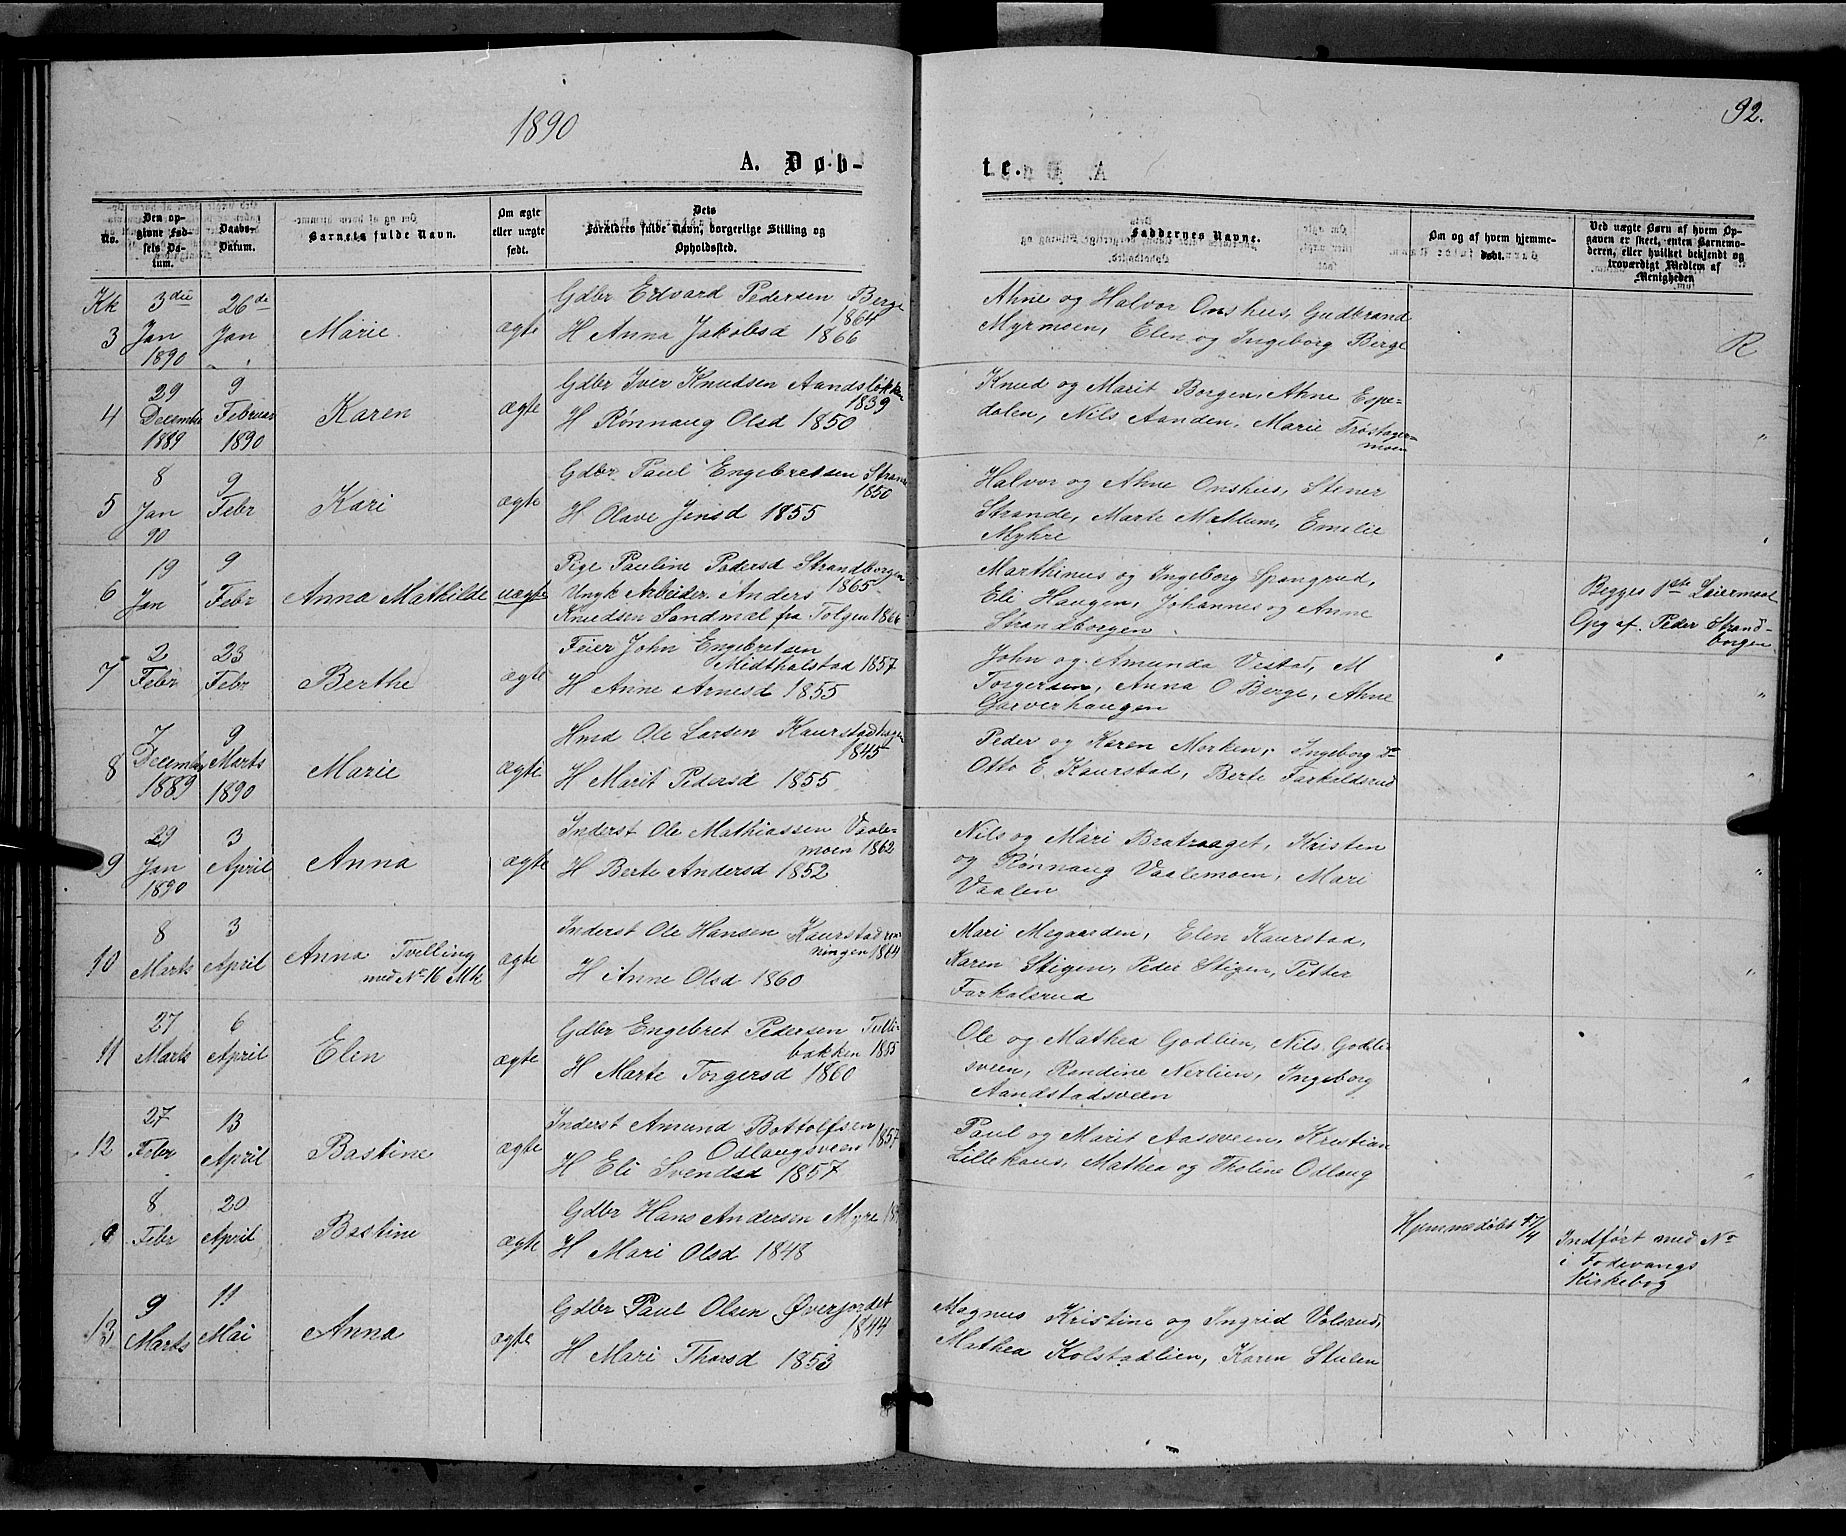 1890
92.
A. Døb-
te.
No.
Den op-
givne Fød-
sels Da-
tum.
Daabs-
Datum.
Barnets fulde Navn.
Om ægte
eller uægte
født.
Dets
Forældres fulde Navn, borgerlige Stilling og
Opholdssted.
Faddernes Navne.
Om og af hvem hjemme-
døbt.
Ved uægte Børn af hvem Op-
gaven er skeet, enten Barnemo-
deren, eller hvilket bekjendt og
troværdigt Medlem af
Menigheden
Kk
3
3die
Jan
1890
26de
Jan
Marie
ægte
Gdbr Edvard Pedersen Berge
1864
H Anna Jakobsd 1866
Ahne og Halvor Onshus, Gudbrand
Myrmoen, Elen og Ingeborg Berge
R
4
29
Decembr
1889
9
Februar
1890
Karen
ægte
Gdbr Iver Knudsen Aandsløkken
1839
H Rønnaug Olsd 1850
Knud og Marit Borgen, Ahne Espe-
dalen, Nils Aanden, Marie Frøstager-
moen
"
5
8
Jan
90
9
Febr
Kari
ægte
Gdbr Paul Engebretsen Strande
1850
H Olave Jensd 1855
Halvor og Ahne Onshus, Stener
Strande, Marte Mattum, Emelie
Myhre
"
6
19
Jan
9
Febr
Anna Mathilde
uægte
Pige Pauline Pedersd Strandborgen
1865
Ungk Arbeider Anders
Knudsen Sandmæl fra Tolgen 1866
Marthinus og Ingeborg Spangrud,
Eli Haugen, Johannes og Anne
Strandborgen
Begges 1ste Leiermaal
Opg af Peder Strand-
borgen
7
2
Febr
23
Febr
Berthe
ægte
Feier John Engebretsen
Midthalstad 1857
H Anne Arnesd 1855
John og Amunda Vestad, M
Torgersen, Anna O Berge, Ahne
Garverhaugen
"
8
7
Decembr
1889
9
Marts
1890
Marie
ægte
Hmd Ole Larsen Kaurstadhagen
1845
H Marit Pedersd 1855
Peder og Karen Morken, Ingeborg &
Otto E Kaurstad, Berte Farkildsrud
"
9
29
Jan
1890
3
April
Anna
ægte
Inderst Ole Mathiassen Vaale-
moen 1862
H Berte Andersd 1852
Nils og Mari Bratraaget, Kristen
og Rønnaug Vaalemoen, Mari
Vaalen
"
10
8
Marts
3
April
Anna Tvelling
med No 16 Mk
ægte
Inderst Ole Hansen Kaurstadrø-
ningen 1864
H Anne Olsd 1860
Mari Megaarden, Elen Kaurstad,
Karen Stigen, Peder Stigen, Petter
Farkalsrud
"
11
27
Marts
6
April
Elen
ægte
Gdbr Engebret Pedersen Tulli-
bakken 1855
H Marte Torgersd 1860
Ole og Mathea Godlien, Nils Godli-
sveen, Randine Nerlien, Ingeborg
Aandstadsveen
"
12
27
Febr
13
April
Bastine
ægte
Inderst Amund Bottolfsen
Odlaugsveen 1857
H Eli Svendsd 1857
Paul og Marit Aasveen, Kristian
Lillehaus, Mathea og Tholine Odlaug
"
8
Febr
20
April
Bastine
ægte
Gdbr Hans Andersen Myre
H Mari Olsd 1848
Hjemmedøbt 17/4
Indført med No
i Fodvangs
Kirkebog
13
9
Marts
11
Mai
Anna
ægte
Gdbr Paul Olsen Øverjordet
1844
H Mari Thorsd 1853
Magnus Kristine og Ingrid Volsrud,
Mathea Kolstadlien, Karen Stulen